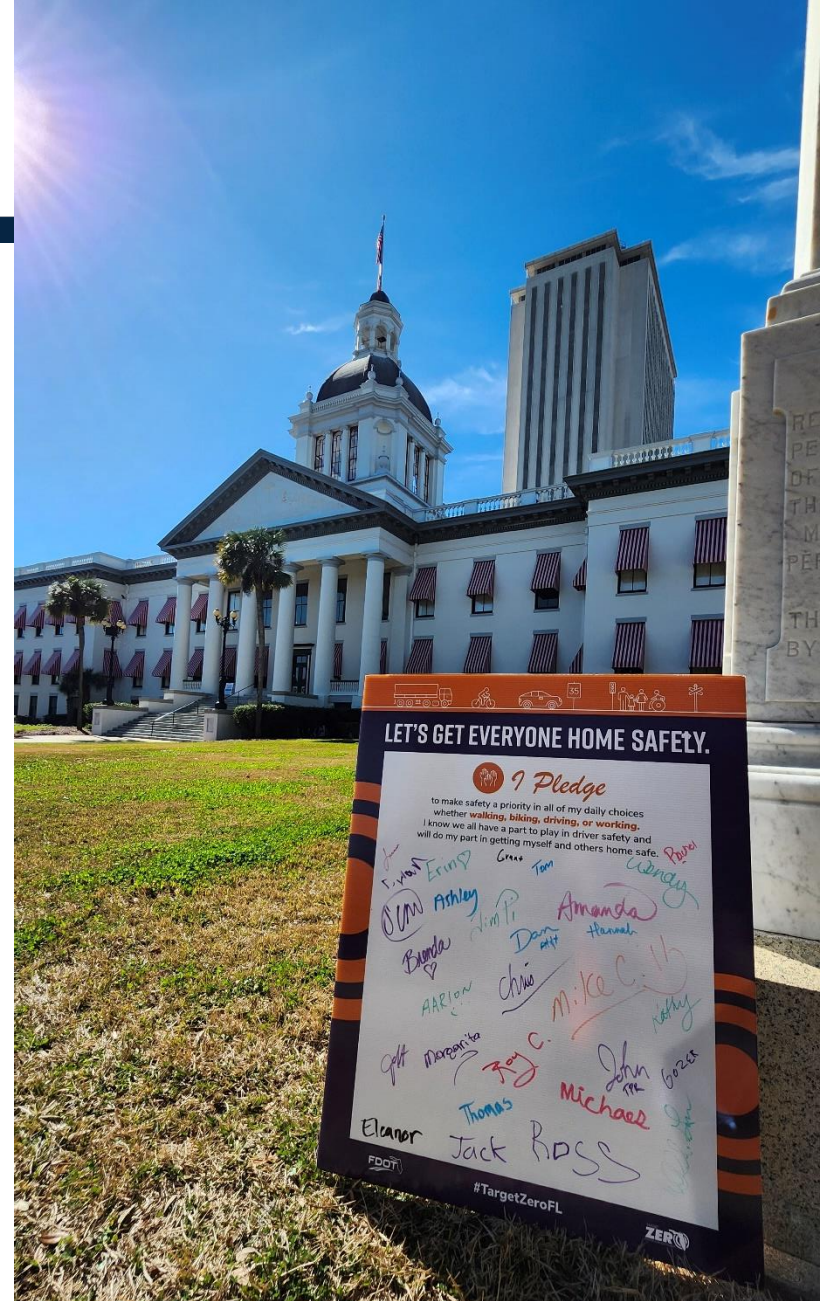 35
LET'S GET EVERYONE HOME SAFELY.
I Pledge
to make safety a priority in all of my daily choices
whether walking, biking, driving, or working.
I know we all have a part to play in driver safety and
will do my part in getting myself and others home safe.
Erin
Grant
Tom
Wendy
Ashley
Jim P.
Amanda
Dan
Hannah
Brenda
Chris
Mike C.
Kathy
AARION
Margarita
Roy C.
John
TPK
GOZER
Thomas
Michael
Eleanor
Jack
Ross
FDOT
#TargetZeroFL
ZERO
RE
PE
OF
TH
M
PER
TH
BY